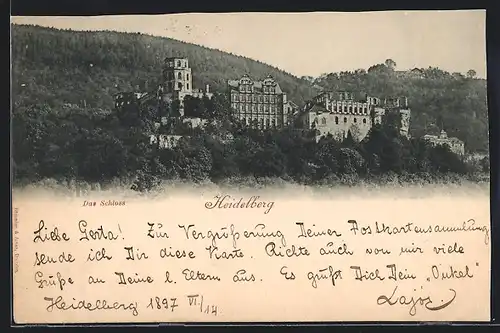 Das Schloss
Heidelberg
Liebe Gerta! Zur Vergrößerung Deiner Postkartensammlung
sende ich Dir diese Karte. Richte auch von mir viele
Grüße an Deine l. Eltern aus. Es grüßt Dich Dein „Onkel"
Heidelberg 1897 VI/14.
Lajos.